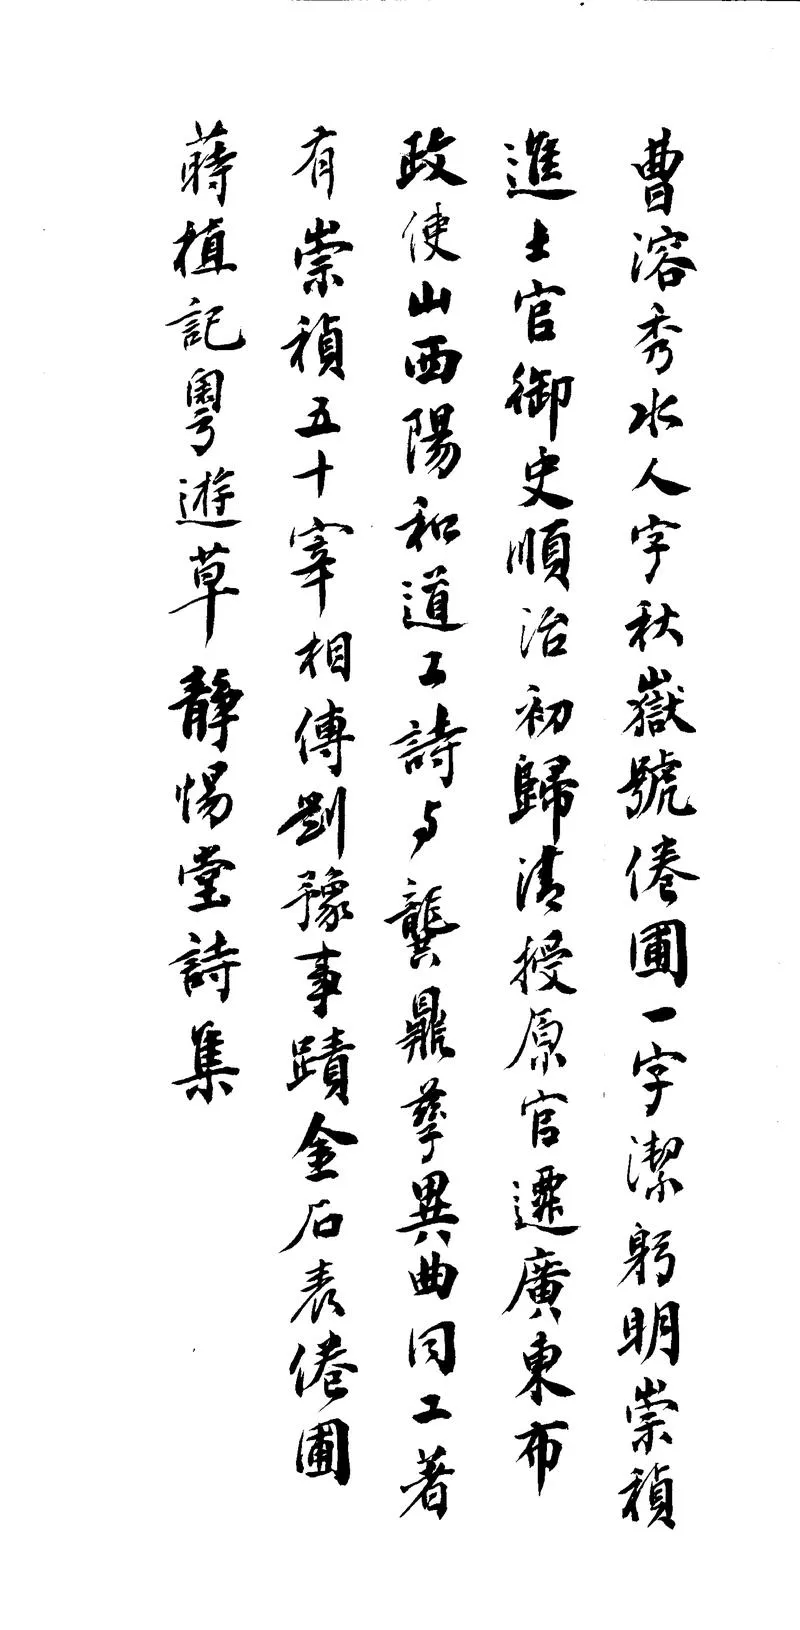 曹溶秀水人字秋嶽號倦圃一字潔躬明崇禎
進士官御史順治初歸清授原官遷廣東布
政使山西陽和道工詩与龔鼎孳異曲同工著
有崇禎五十宰相傳劉豫事蹟金石表倦圃
蒔植記粵遊草靜惕堂詩集